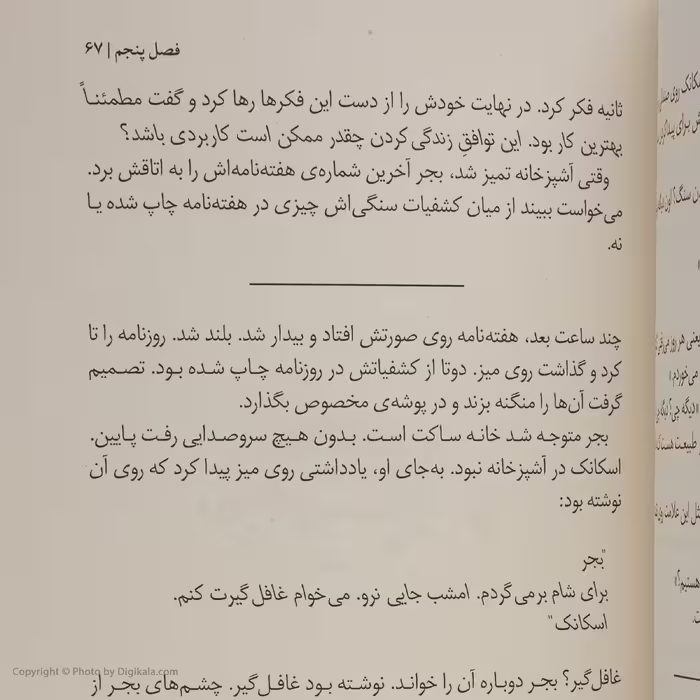 فصل پنجم | ۶۷
ثانیه فکر کرد. در نهایت خودش را از دست این فکرها رها کرد و گفت مطمئنـاً
بهترین کار بود. این توافقِ زندگی کردن چقدر ممکن است کاربردی باشد؟
وقتی آشپزخانه تمیز شد، بجر آخرین شماره‌ی هفته‌نامه‌اش را به اتاقش برد.
می‌خواست ببیند از میان کشفیات سنگی‌اش چیزی در هفته‌نامه چاپ شده یـا
نه.
چند ساعت بعد، هفته‌نامه روی صورتش افتاد و بیدار شد. بلند شد. روزنامه را تا
کرد و گذاشت روی میز. دوتا از کشفیاتش در روزنامه چـاپ شـده بـود. تصـمیم
گرفت آن‌ها را منگنه بزند و در پوشه‌ی مخصوص بگذارد.
بجر متوجـه شـد خانـه سـاکت اسـت. بـدون هـیچ سروصـدایی رفـت پـایین.
اسکانک در آشپزخانه نبود. به‌جای او، یادداشتی روی میز پیدا کرد که روی آن
نوشته بود:
"بجر
برای شام برمی‌گردم. امشب جایی نرو. می‌خوام غافل‌گیرت کنم.
اسکانک"
غافل‌گیر؟ بجـر دوبـاره آن را خوانـد. نوشـته بـود غافـل‌گیر. چشـم‌های بجـر از
Copyright © Photo by Digikala.com